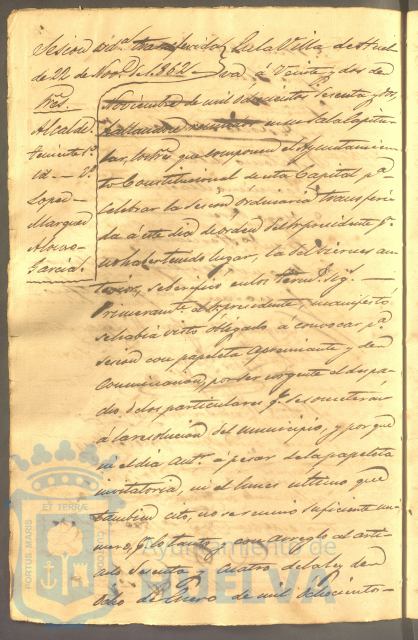 Sesion ord.ª transferida
de 22 de Nov.e de 1862
Pres.
Alcalde.
Teniente 1º
id. — 2º
Lopez
Marquez
Alonso
Garcia.
En la Villa de Huel
va á Veinte y dos de
Noviembre de mil ochocientos Sesenta y dos,
en su Sala Capitu
lar, los Sres que componen el Ayuntamien
to Constitucional de esta Capital pª
celebrar la Sesion Ordinaria transferi
da á este dia de orden del Sr presidente pr
no haber tenido lugar, la del viernes an
terior, se
Primeramte el Sr presidente, manifestó
se habia visto obligado á convocar pª
sesion con papeleta apremiante y de
Comminacion, por ser urgente el despa
cho de los particulares qe se someterán
á la resolucion del municipio, y porque
ni el dia á pesar de la papeleta
invitatoria, ni el lunes ultimo que
tambien citó, no se reunió suficiente nu
mero, pr lo tanto y con arreglo al arti
culo Sesenta y cuatro de la ley de
ocho de Enero de mil Ochociento
PORTUS MARIS
ET TERRÆ
CUSTODIA
Ayuntamiento de
HUELVA